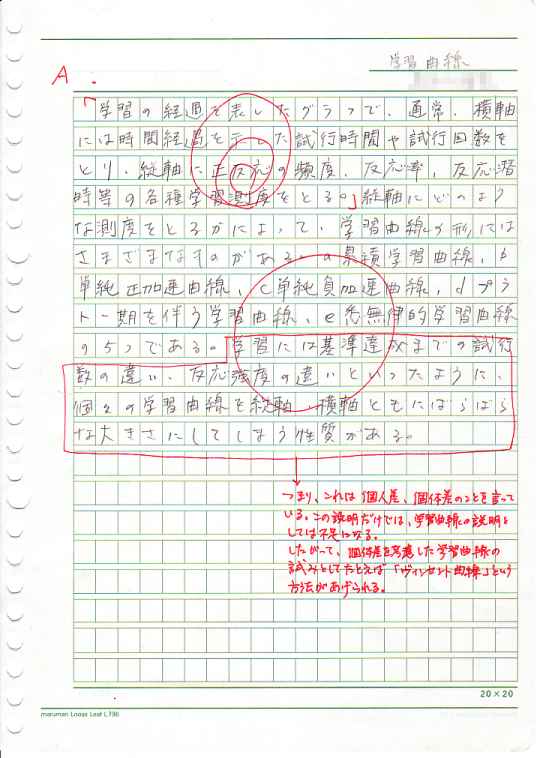 学習曲線
A
「学習の経過を表したグラフで、通常、横軸
には時間経過を示した試行時間や試行回数を
とり、縦軸に正反応の頻度、反応率、反応潜
時等の各種学習測度をとる。」縦軸にどのよう
な測度をとるかによって、学習曲線の形には
さまざまなものがある。a累積学習曲線、b
単純正加速曲線、c単純負加速曲線、dプラ
トー期を伴う学習曲線、e悉無律的学習曲線
の5つである。学習には基準達成までの試行
数の違い、反応強度の違いといったように、
個々の学習曲線を縦軸、横軸ともにばらばら
な大きさにしてしまう性質がある。
つまり、これは個人差、個体差のことを言って
いる。この説明だけでは、学習曲線の説明と
しては不足になる。
したがって、個体差を考慮した学習曲線の
試みとしてたとえば「ヴィンセント曲線」という
方法があげられる。
20×20
maruman Loose Leaf L736